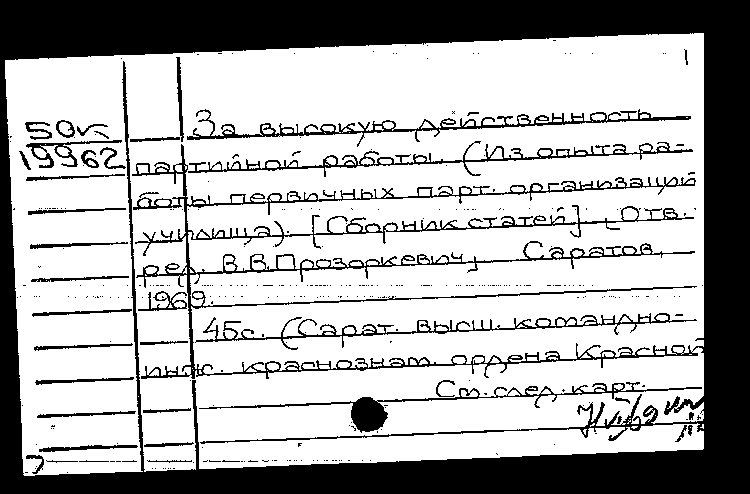 1
50к За высокую действенность
19962 партийной работы. (Из опыта ра-
боты первичных парт. организаций
училища). [Сборник статей]. Отв.
ред. В.В.Прозоркевич, Саратов,
1969.
45с. (Сарат. высш. командно-
инж. краснознам. ордена Красной
См.след.карт.